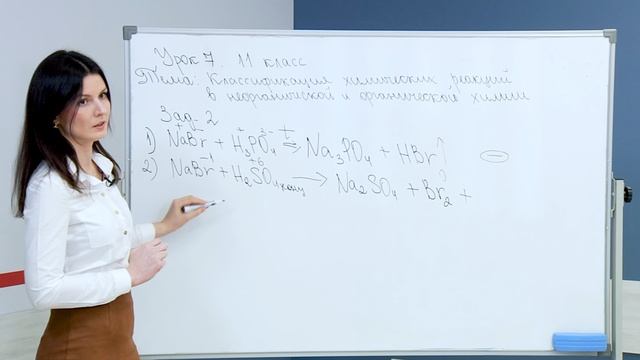 Урок 7. 11 класс
Тема: Классификация химических реакций
в неорганической и органической химии
Зад. 2
1) NaBr + H₃PO₄ ⇌ Na₃PO₄ + HBr↑ ⊖
2) NaBr⁻¹ + H₂S⁺⁶O₄ конц → Na₂SO₄ + Br₂⁰ +